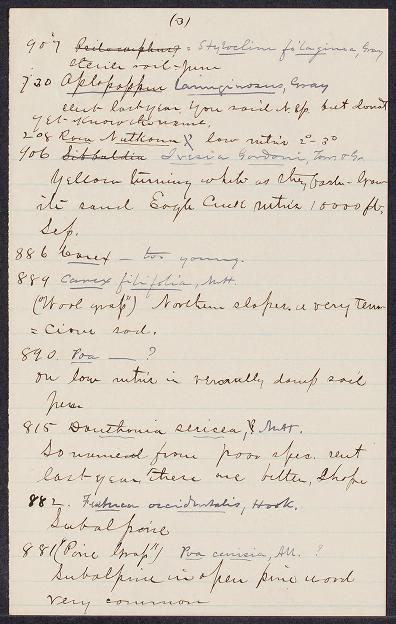 (3)
907 Psilocarphus = Stylocline filaginea, Gray
sterile soil - June
730 Aplopappus lanuginosus, Gray
sent last year, you said N. sp. but don't
yet know the name.
208 Rosa Nutkana X low mtns 2°-3°
906 Sibbaldia Ivesia Gordoni, Torr & Gr
Yellow turning white as they fade - 
ite sand Eagle Creek mtns 10000 ft.
Sep.
886 Carex - too young.
889 Carex filifolia, Nutt.
("Wool grass") Northern slopes, a very tena-
= cious sod.
890. Poa — ?
on low mtns in vernally damp soil
June
815 Danthonia sericea, Nutt.
So named from poor spec. sent
last year, these are better, I hope
882. Festuca occidentalis, Hook.
Subalpine
881 ("Pine Grass") Poa caesia, All. ?
Subalpine in open pine wood
very common